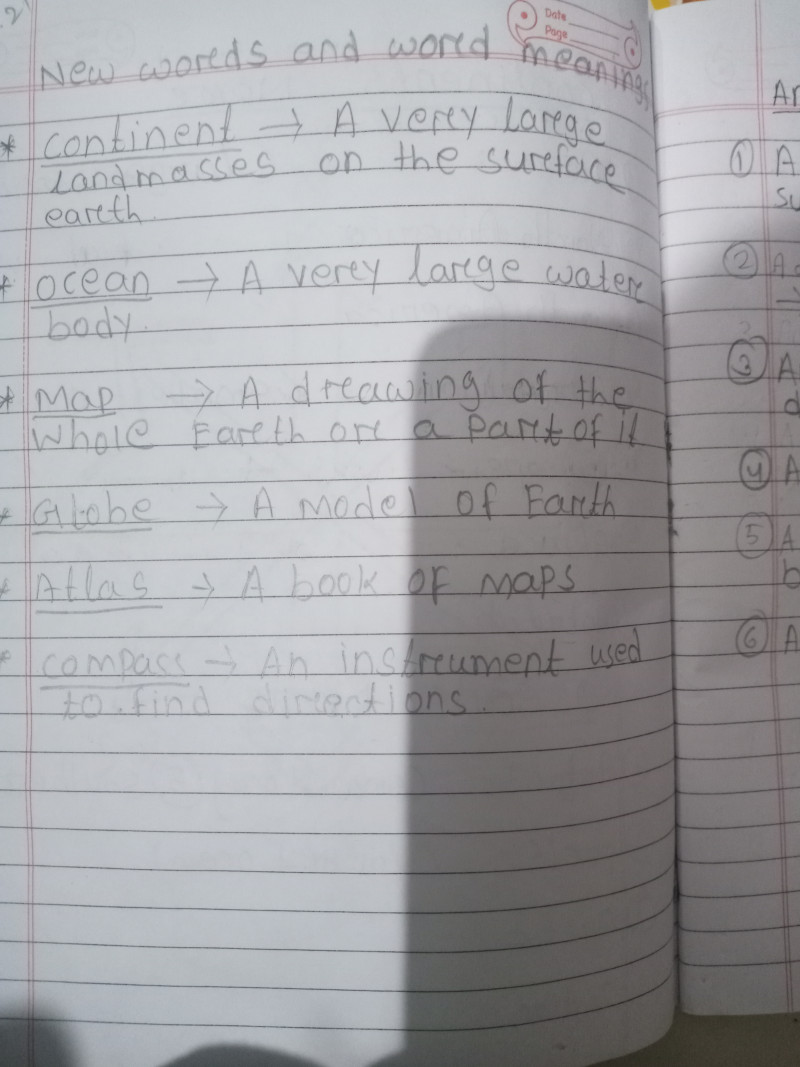 2
Date
Page
New words and word meanings
* Continent → A very large
landmasses on the surface
earth.
* Ocean → A very large water
body.
* Map → A drawing of the
whole Earth or a part of it
* Globe → A model of Earth
* Atlas → A book of maps
* compass → An instrument used
to find directions.
An
① A
su
② A
③ A
d
④ A
⑤ A
b
⑥ A